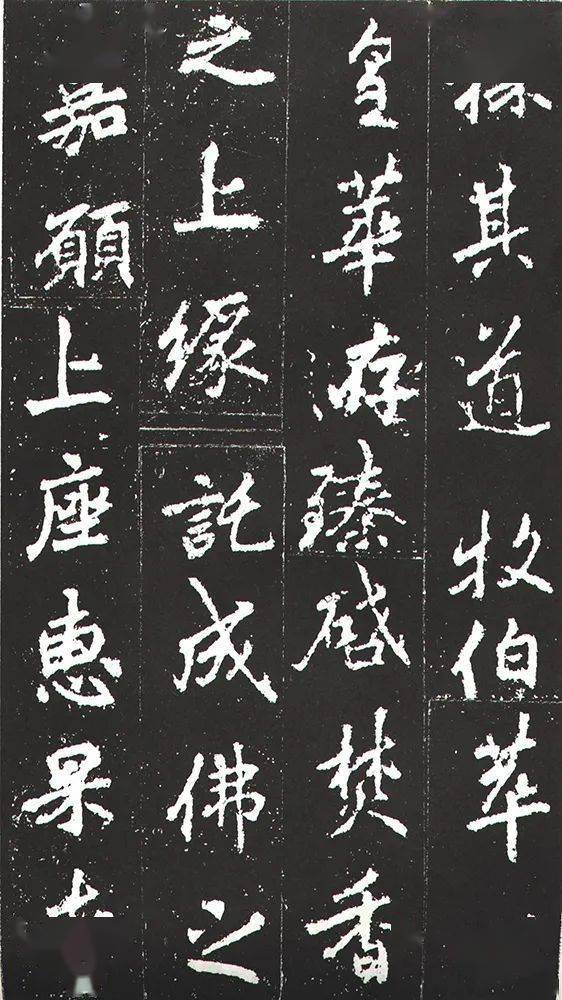 其道牧伯萃
皇華洊臻啓焚香
之上緣託成佛之
願上座惠杲